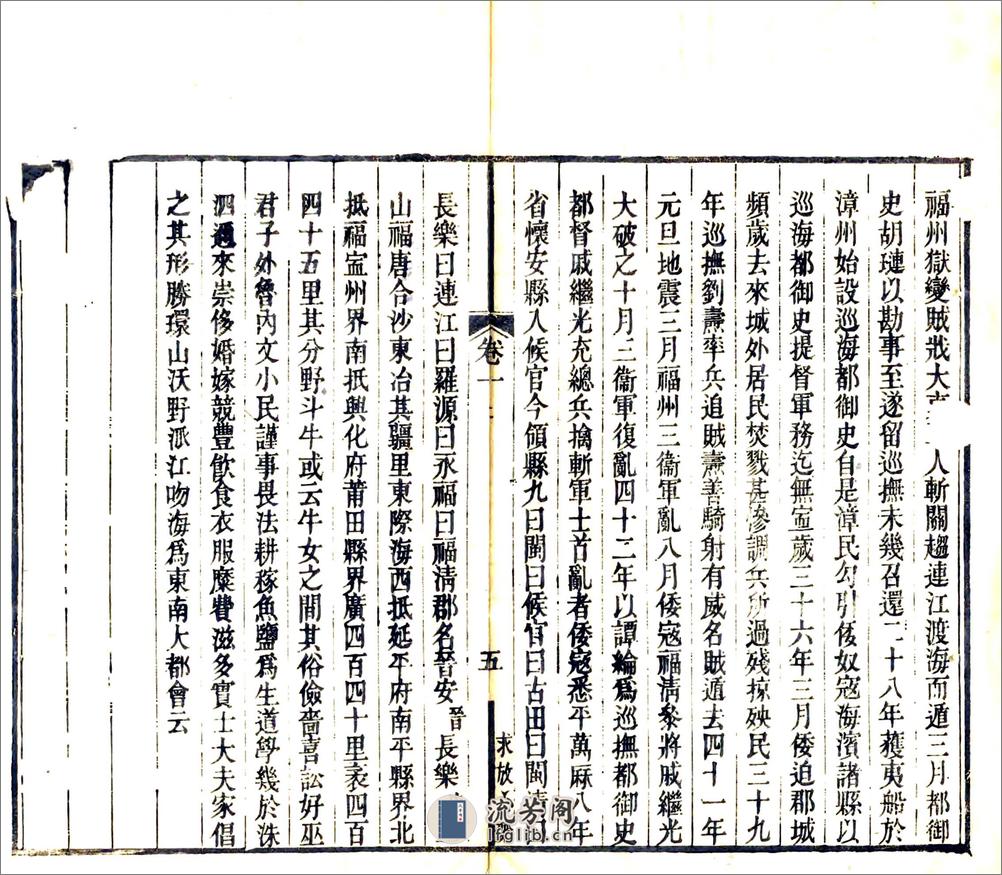 福州獄變賊戕大 人斬關趨連江渡海而遁三月都御
史胡璉以勘事至遂留巡撫未幾召還二十八年蒦夷船於
漳州始設巡海都御史自是漳民勾引倭奴寇海濱諸縣以
巡海都御史提督軍務迄無寍歲三十六年三月倭迫郡城
頻歲去來城外居民焚戮甚慘調兵所過殘掠殃民三十九
年巡撫劉燾率兵追賊燾善騎射有威名賊遁去四十一年
元旦地震三月福州三衞軍亂八月倭寇福淸叅將戚繼光
大破之十月三衞軍復亂四十二年以譚綸爲巡撫都御史
都督戚繼光充總兵擒斬軍士首亂者倭寇悉平萬厤八年
省懷安縣人候官今領縣九曰閩曰候官曰古田曰閩淸曰
卷一
五
求放
長樂曰連江曰羅源曰永福曰福淸郡名晉安晉長樂
山福唐合沙東冶其疆里東際海西抵延平府南平縣界北
抵福寍州界南抵興化府莆田縣界廣四百四十里袤四百
四十五里其分野斗牛或云牛女之間其俗儉嗇喜訟好巫
君子外魯內文小民謹事畏法耕稼魚鹽爲生道學幾於洙
泗邇來崇侈婚嫁競豐飮食衣服糜費滋多實士大夫家倡
之其形勝環山沃野派江吻海爲東南大都會云
流芳阁
lfglib.cn